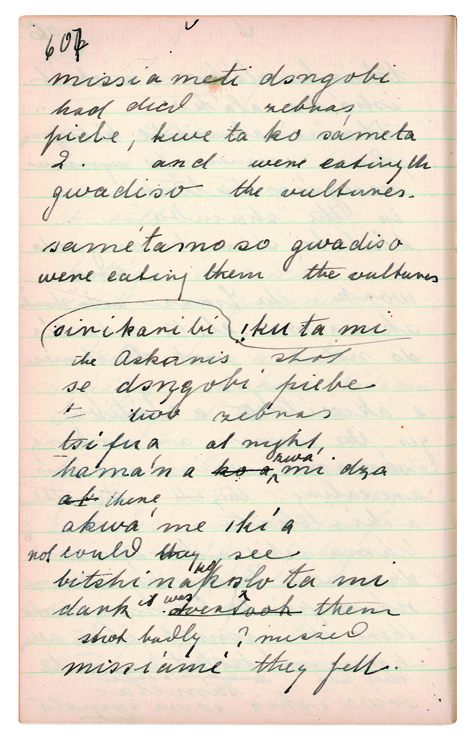 607
missia meti dsngobi
had died zebras
piebe, kwe ta ko sámeta
2. and were eating th
gwadiso the vultures.
samétamoso gwadiso
were eating them the vultures
sirikaribi !ku ta mi
the Askaris shot
se dsngobi piebe
two zebras
tsifua at night,
hamá'n a mi dza
there
akwá me !hí a
not could they see
bitshina ko slo ta mi
dark it was took them
shot badly ? missed
missiamé they fell.